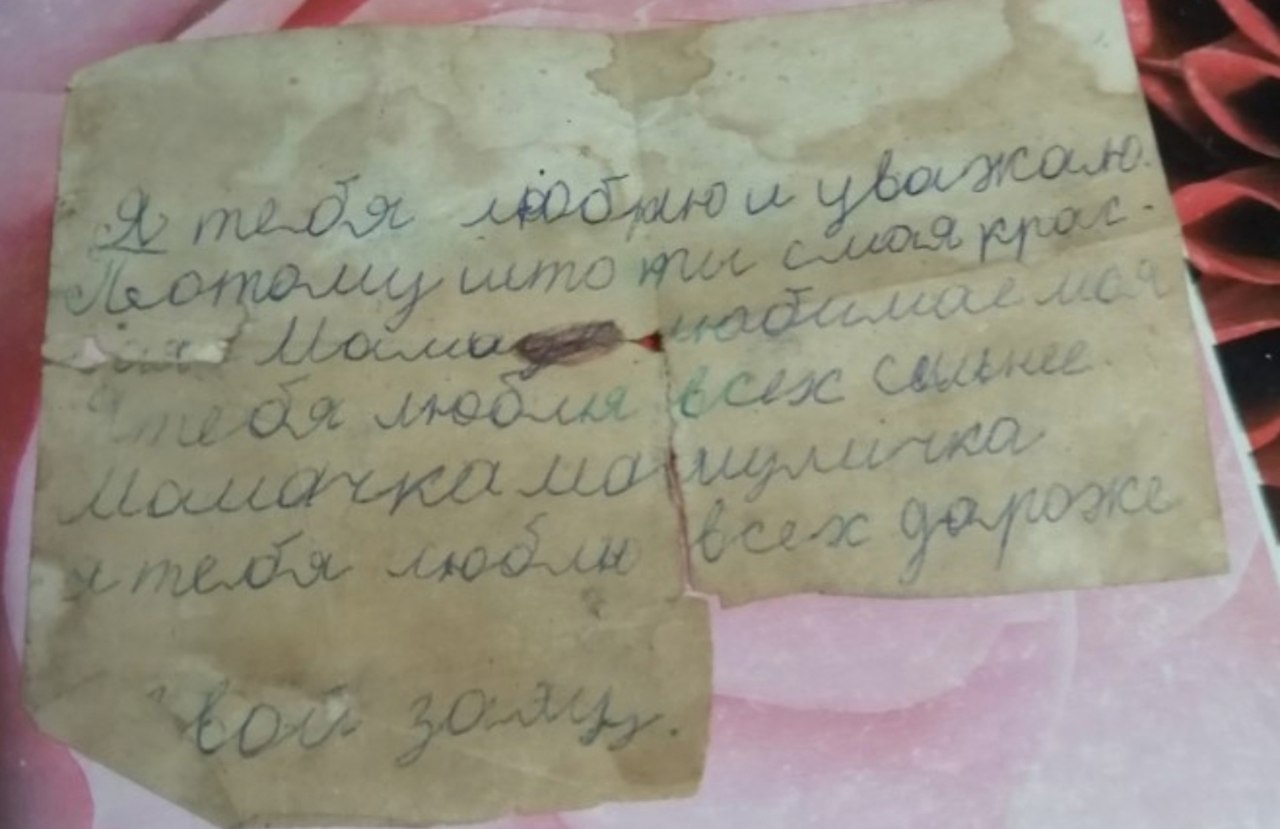 Я тебя люблю и уважаю.
Потому што ты смая крас-
ная Мама любимае моя
тебя любля всех сильнее.
Мамачка мамуличка
я тебя люблю всех дароже
вой заяц.